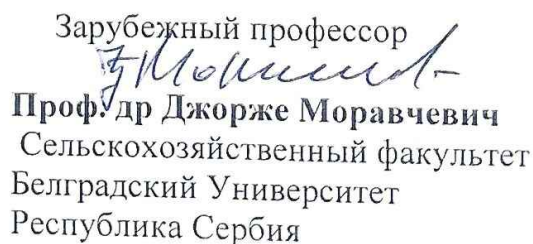 Зарубежный профессор
Проф. др Джорже Моравчевич
Сельскохозяйственный факультет
Белградский Университет
Республика Сербия